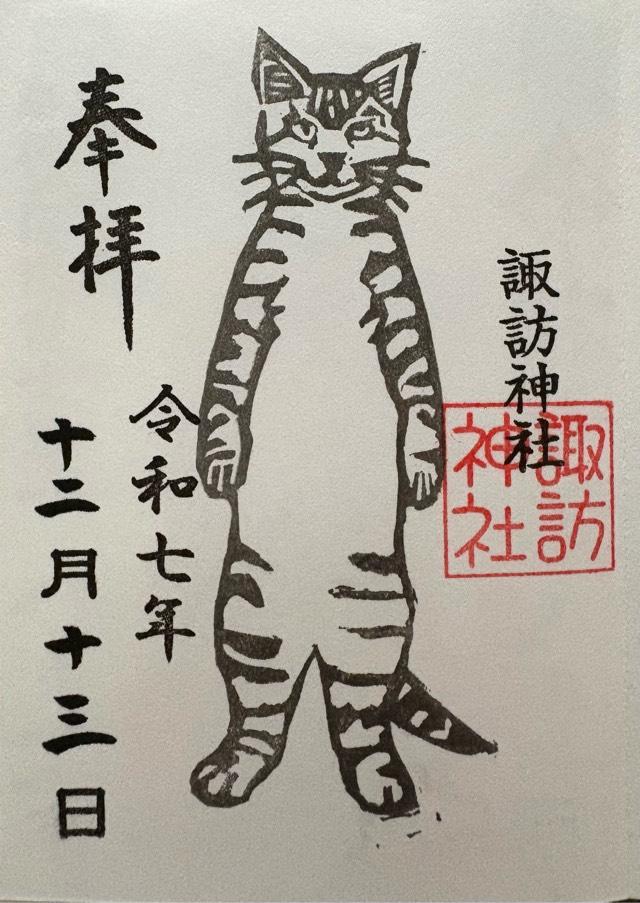 諏訪神社
諏訪
神社
奉拝
令和七年
十二月十三日